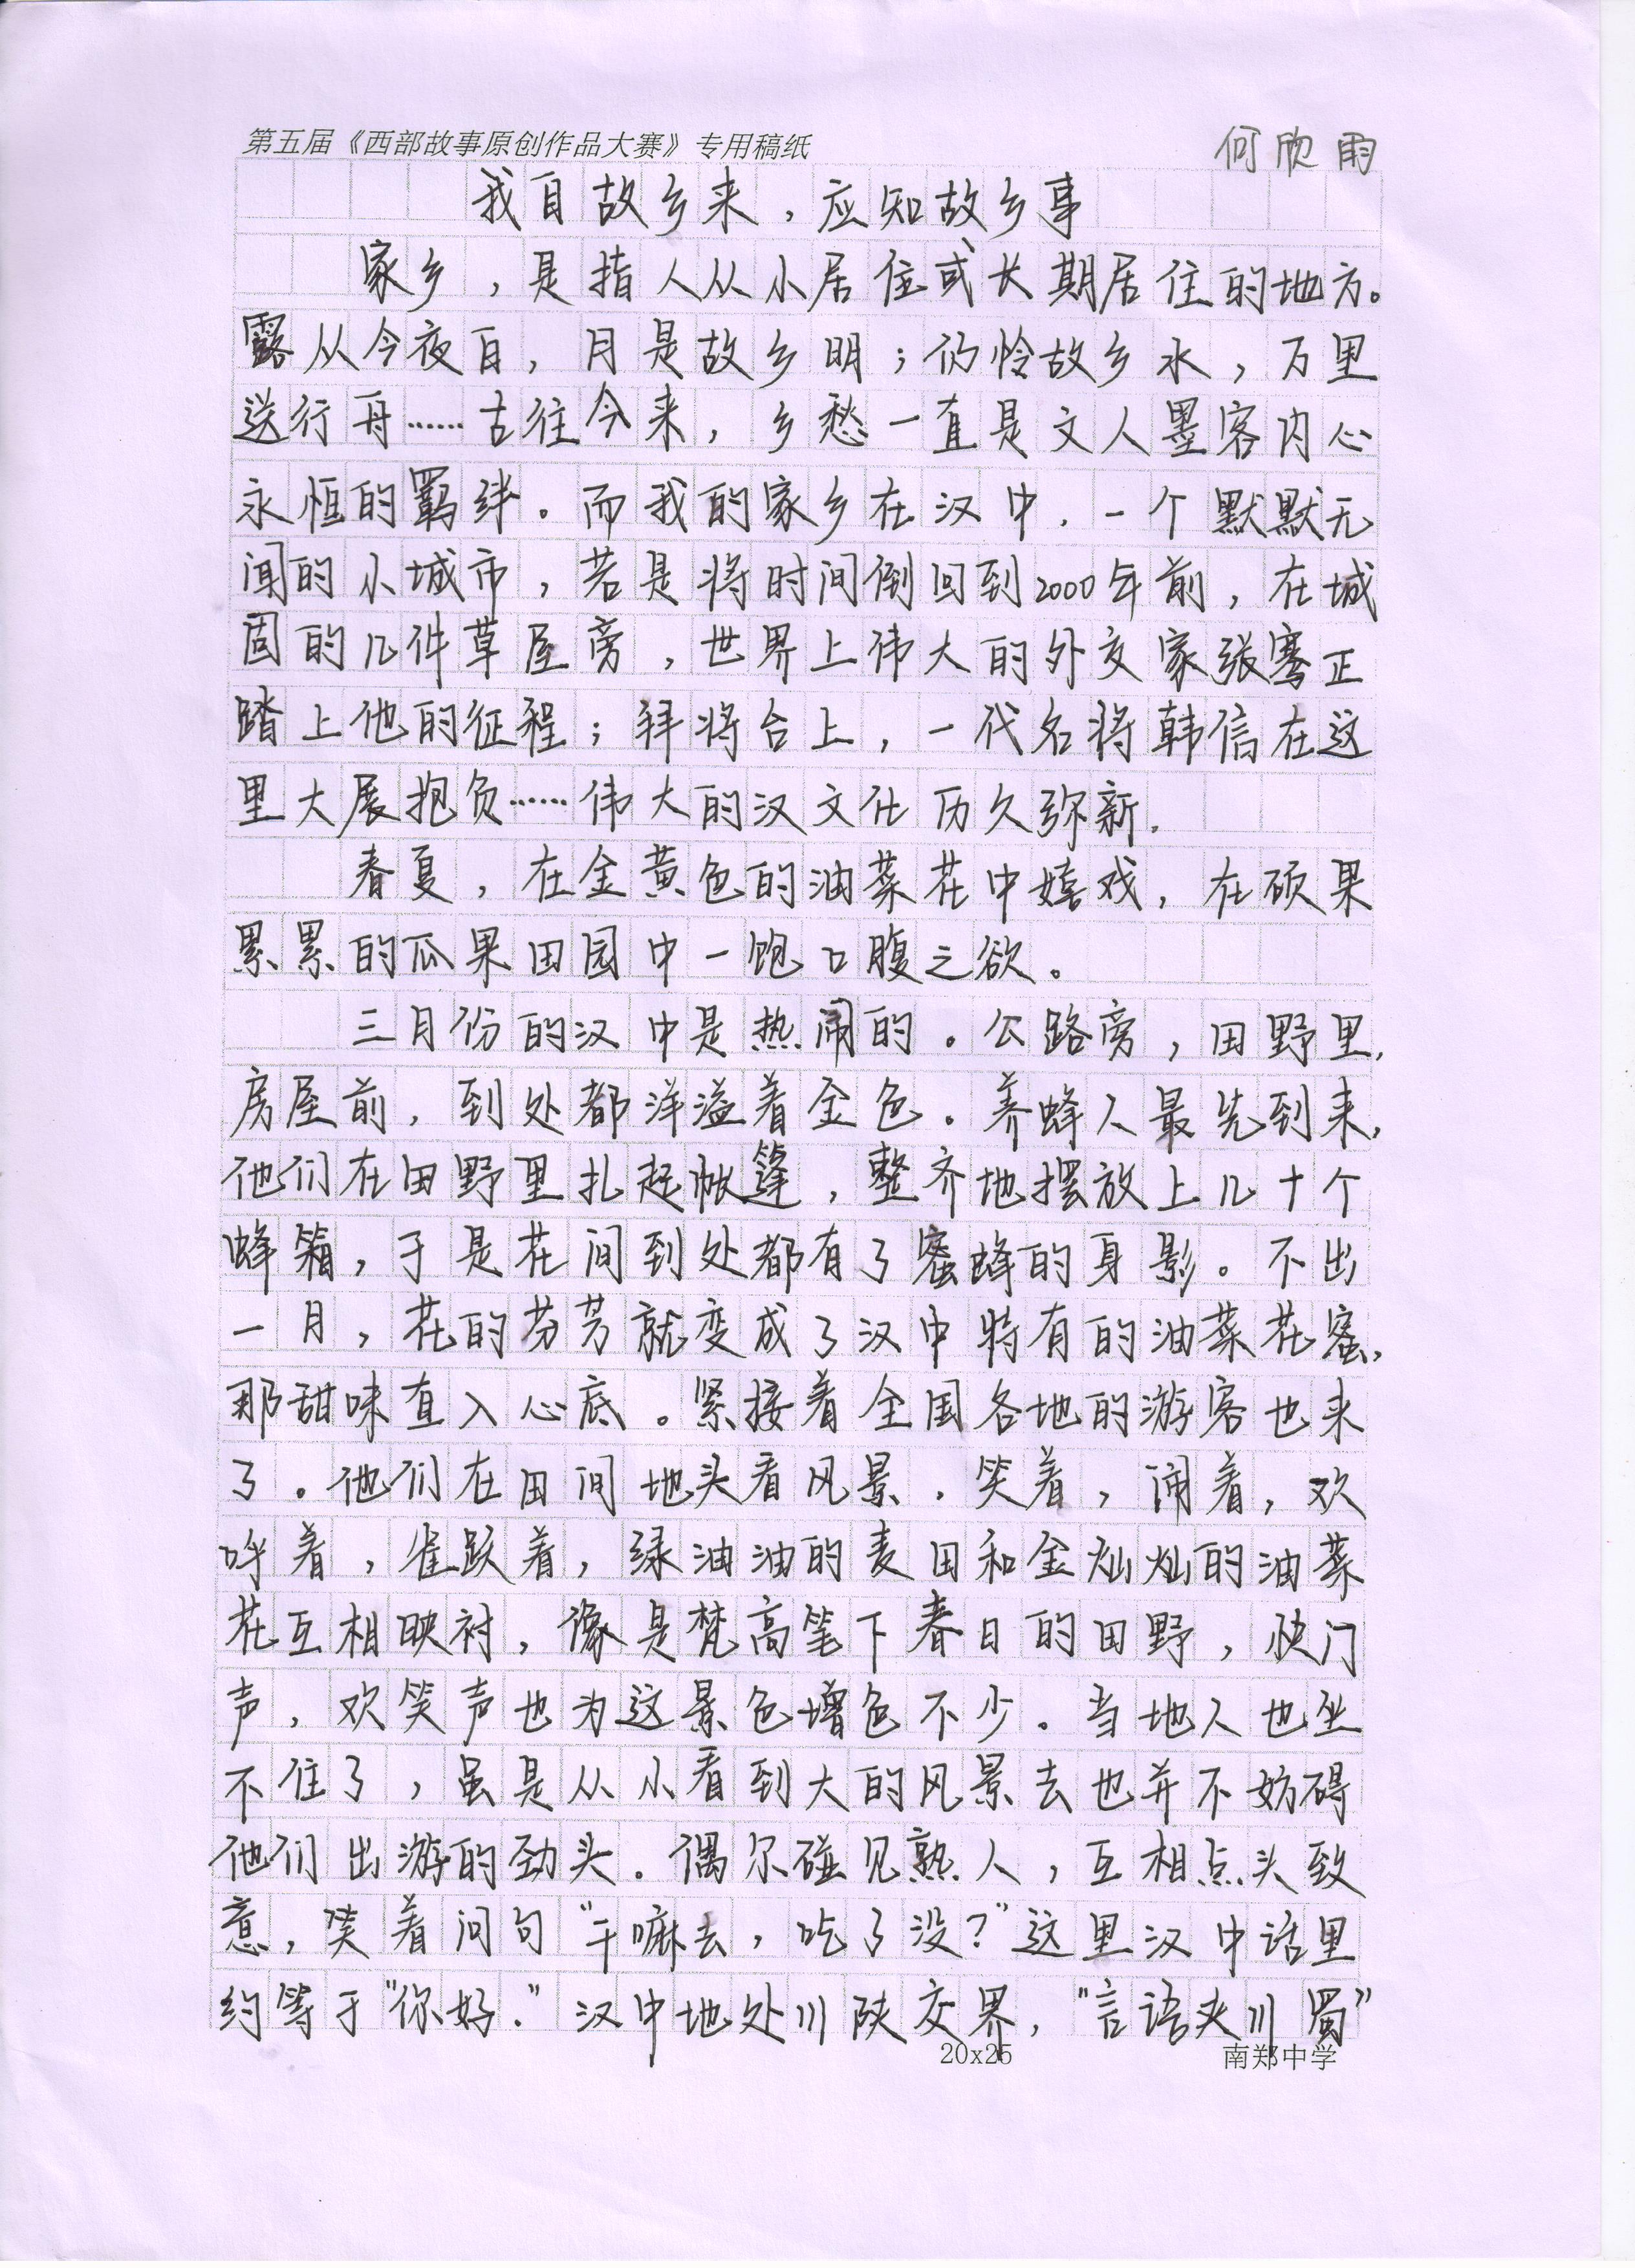 第五届《西部故事原创作品大赛》专用稿纸
何欣雨
我自故乡来，应知故乡事
家乡，是指人从小居住或长期居住的地方。
露从今夜白，月是故乡明；仍怜故乡水，万里
送行舟……古往今来，乡愁一直是文人墨客内心
永恒的羁绊。而我的家乡在汉中，一个默默无
闻的小城市，若是将时间倒回到2000年前，在城
固的几件草屋旁，世界上伟大的外交家张骞正
踏上他的征程；拜将台上，一代名将韩信在这
里大展抱负……伟大的汉文化历久弥新。
春夏，在金黄色的油菜花中嬉戏，在硕果
累累的瓜果田园中一饱口腹之欲。
三月份的汉中是热闹的。公路旁，田野里，
房屋前，到处都洋溢着金色。养蜂人最先到来，
他们在田野里扎起帐篷，整齐地摆放上几十个
蜂箱，于是花间到处都有了蜜蜂的身影。不出
一月，花的芬芳就变成了汉中特有的油菜花蜜，
那甜味直入心底。紧接着全国各地的游客也来
了。他们在田间地头看风景，笑着，闹着，欢
呼着，雀跃着，绿油油的麦田和金灿灿的油菜
花互相映衬，像是梵高笔下春日的田野，快门
声，欢笑声也为这景色增色不少。当地人也坐
不住了，虽是从小看到大的风景去也并不妨碍
他们出游的劲头。偶尔碰见熟人，互相点头致
意，笑着问句“干嘛去，吃了没？”这里汉中话里
约等于“你好.”汉中地处川陕交界，“言语夹川蜀”
20x25
南郑中学